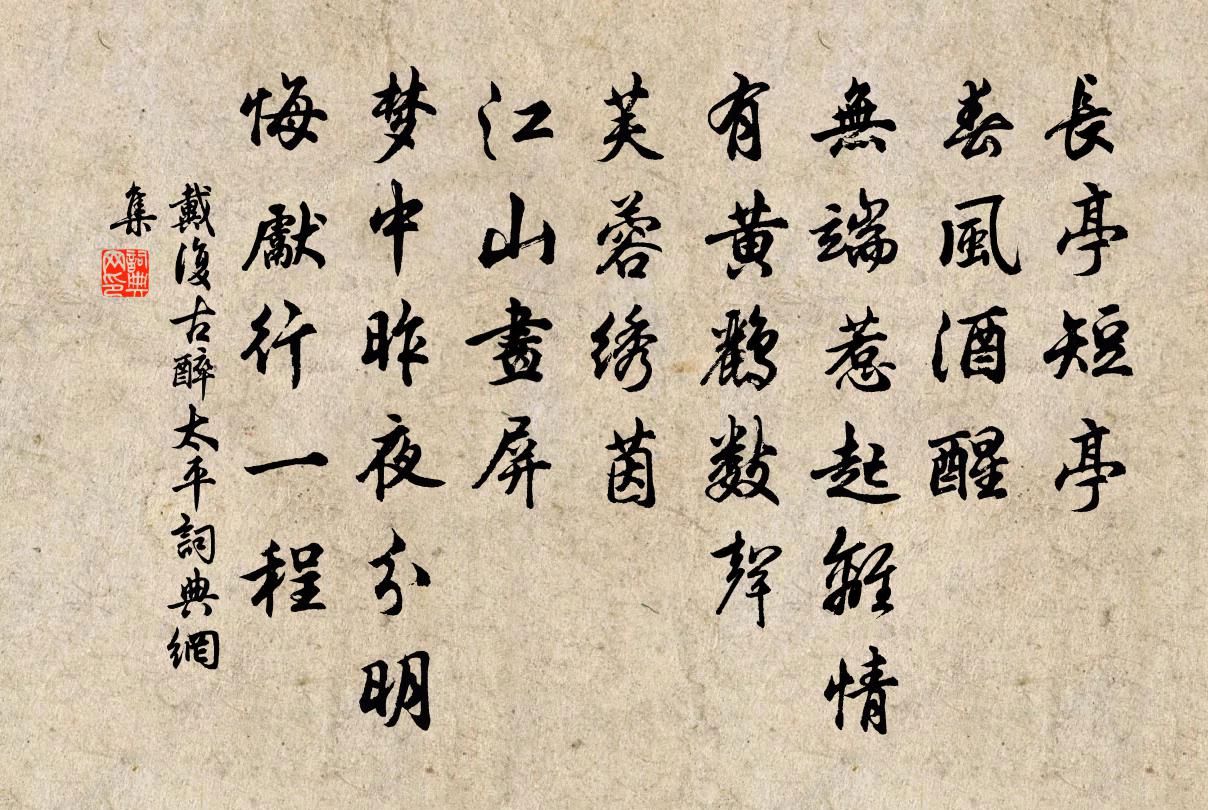 長亭短亭
春風酒醒
無端惹起離情
有黄鸝數聲
芙蓉綉茵
江山畫屏
梦中昨夜分明
悔獻行一程
戴復古醉太平詞典網
集
詞典网印